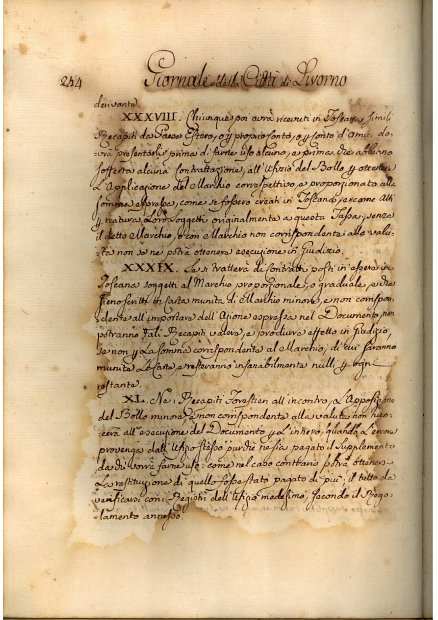 244 Giornale della Città di Livorno
derivante.
XXXVIII. Chiunque poi avrà ricevuti in Toscana simili
Recapiti da Paese Estero, o p proprio conto, o p conto d'Amici do-
vrà presentarli prima di farne uso alcuno, e prima che abbiano
sofferta alcuna contrattazione, all'Ufizio del Bollo p ottenere
L'Applicazione del Marchio correspettivo, e proporzionato alla
somma espressa, come se fossero creati in Toscana, e come Atti
p natura Loro soggetti originalmente a questa Tassa; senza
il detto Marchio, o con Marchio non corrispondente alla valu-
ta non se ne potrà ottenere esecuzione in Giudizio.
XXXIX. Se si tratterà di Contratti posti in essere in
Toscana soggetti al Marchio proporzionale, o graduale, e che
siano scritti in Carta munita di Marchio minore, e non corrispon-
dente all'importare dell'Azione espressa nel Documento, non
potranno tali Recapiti valere, e produrre effetto in Giudizio,
se non p La somma corrispondente al Marchio, di cui saranno
munite Le Carte, e resteranno insanabilmente nulli p ogni
restante.
XL. Ne' Recapiti Forestieri all'incontro, L'Apposizione
del Bollo minore, e non corrispondente alla valuta non nuo-
cerà all'esecuzione del Documento p L'intiero, quando L'errore
provenga dall'Ufizio stesso, purchè ne sia pagato il supplemento
da chi vorrà farne uso: come nel caso contrario potrà ottenersi
La restituzione di quello fosse stato pagato di più; il tutto da
verificarsi con i Registri dell'Ufizio medesimo, secondo il Rego-
lamento annesso.